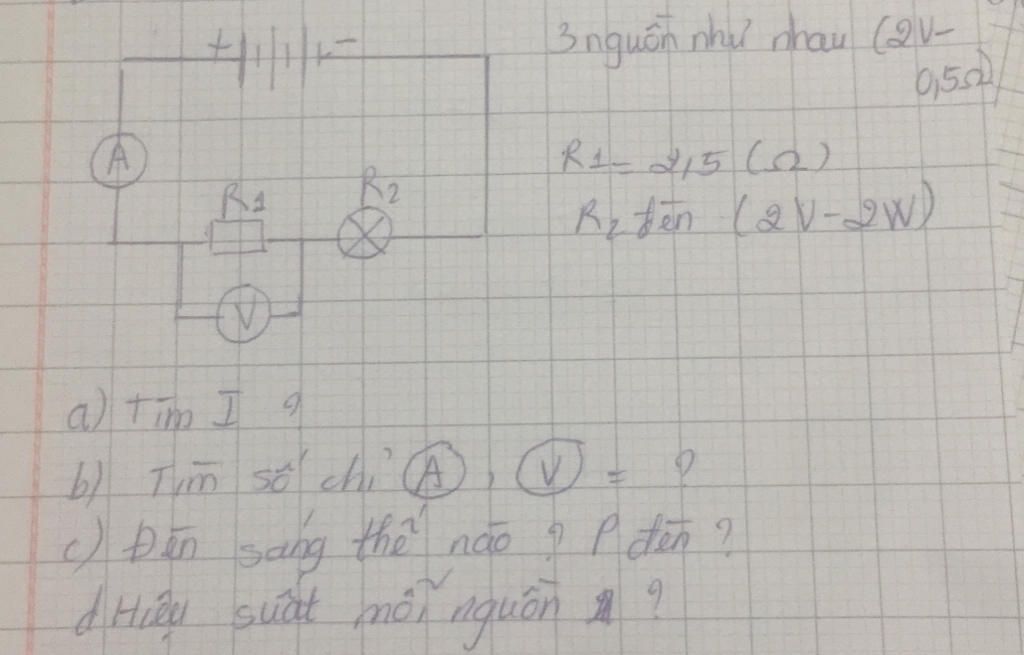 + -
3 nguồn như nhau (2V-
0,5Ω)
A
R1
R2
V
R1 = 2,5 (Ω)
R2 đèn (2V-2W)
a) Tìm I ?
b) Tìm số chỉ A, V = ?
c) Đèn sáng thế nào ? P đèn ?
d Hiệu suất mỗi nguồn ?